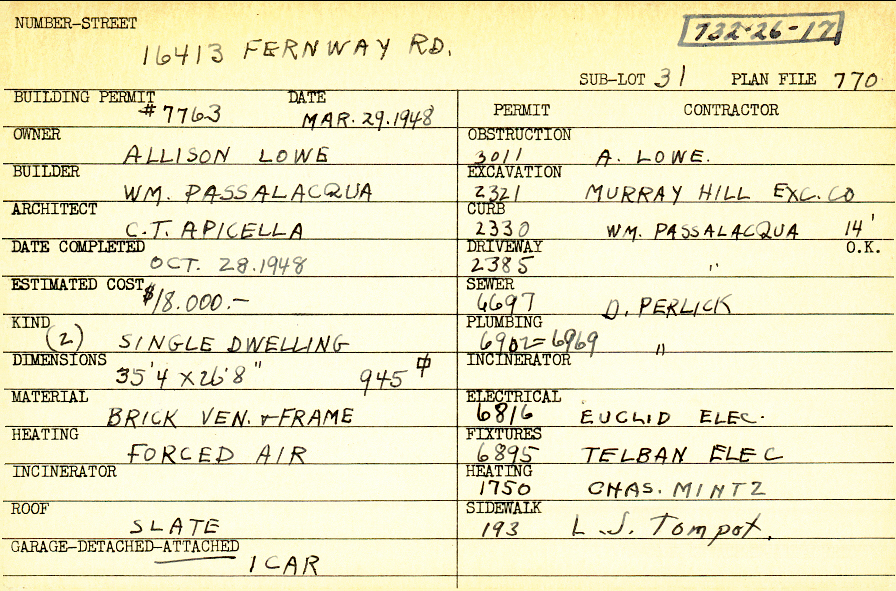 NUMBER-STREET
16413 FERNWAY RD.
732-26-17
SUB-LOT 31 PLAN FILE 770
BUILDING PERMIT DATE
#7763 MAR. 29. 1948
OWNER
ALLISON LOWE
BUILDER
WM. PASSALACQUA
ARCHITECT
C.T. APICELLA
DATE COMPLETED
OCT. 28. 1948
ESTIMATED COST
$18.000.—
KIND
(2) SINGLE DWELLING
DIMENSIONS
35'4 X 26'8" 945
MATERIAL
BRICK VEN. + FRAME
HEATING
FORCED AIR
INCINERATOR
ROOF
SLATE
GARAGE-DETACHED-ATTACHED
1 CAR
PERMIT CONTRACTOR
OBSTRUCTION
3011 A. LOWE.
EXCAVATION
2321 MURRAY HILL EXC. CO
CURB
2330 WM. PASSALACQUA 14'
DRIVEWAY O.K.
2385 "
SEWER
6697 D. PERLICK
PLUMBING
6902=6969 "
INCINERATOR
ELECTRICAL
6816 EUCLID ELEC.
FIXTURES
6895 TELBAN ELEC
HEATING
1750 CHAS. MINTZ
SIDEWALK
193 L.J. Tompot.